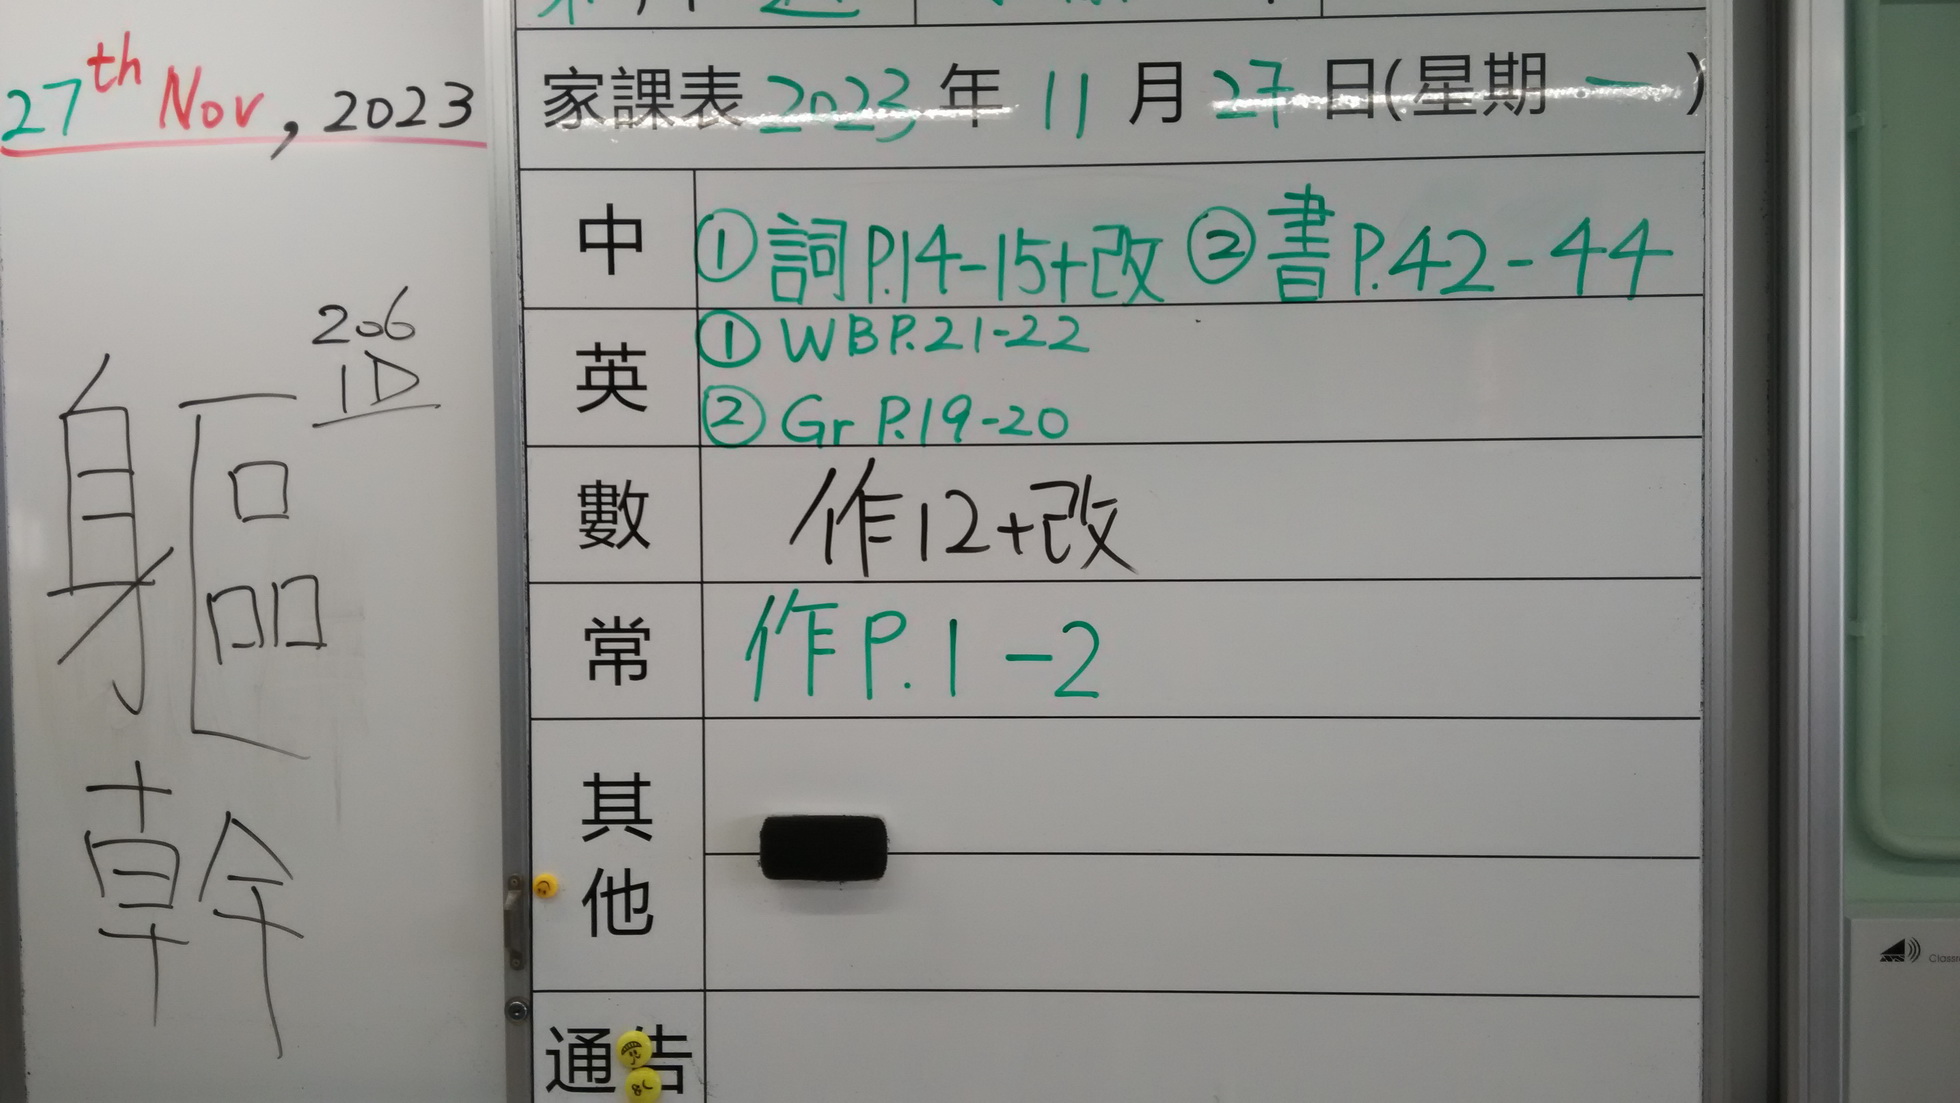 27th Nov, 2023
206
1D
軀
幹
家課表 2023 年 11 月 27 日(星期 一 )
中 ①詞P.14-15+改 ②書P.42-44
英 ① WBP.21-22
② Gr P.19-20
數 作12+改
常 作P.1-2
其他
通告